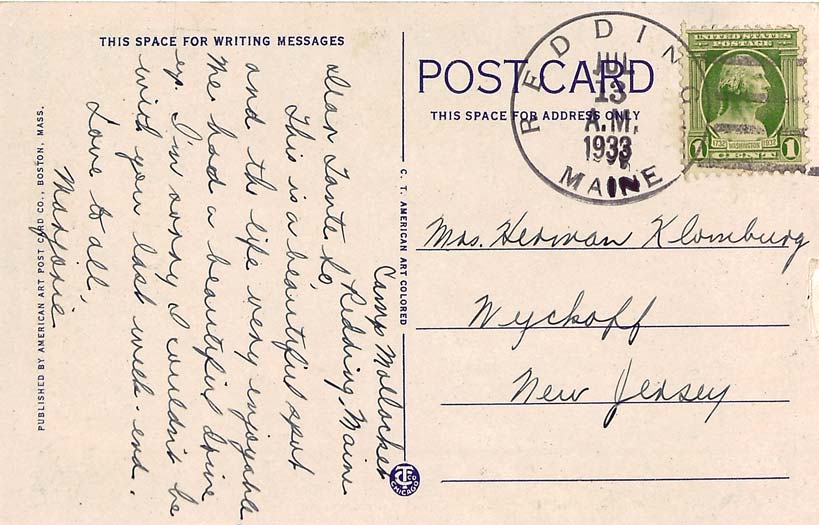 THIS SPACE FOR WRITING MESSAGES
Camp Mollocket
Redding, Maine
Dear Tante Lo,
This is a beautiful spot
and the life very enjoyable
We had a beautiful drive
up. I'm sorry I couldn't be
with you last week-end.
Love to all,
Marjorie
PUBLISHED BY AMERICAN ART POST CARD CO., BOSTON, MASS.
C. T. AMERICAN ART COLORED
CHICAGO
POST CARD
THIS SPACE FOR ADDRESS ONLY
REDDING
JUL
13
A.M.
1933
MAINE
UNITED STATES
POSTAGE
1732 WASHINGTON 1932
1 CENT 1
Mrs. Herman Klomburg
Wyckoff
New Jersey